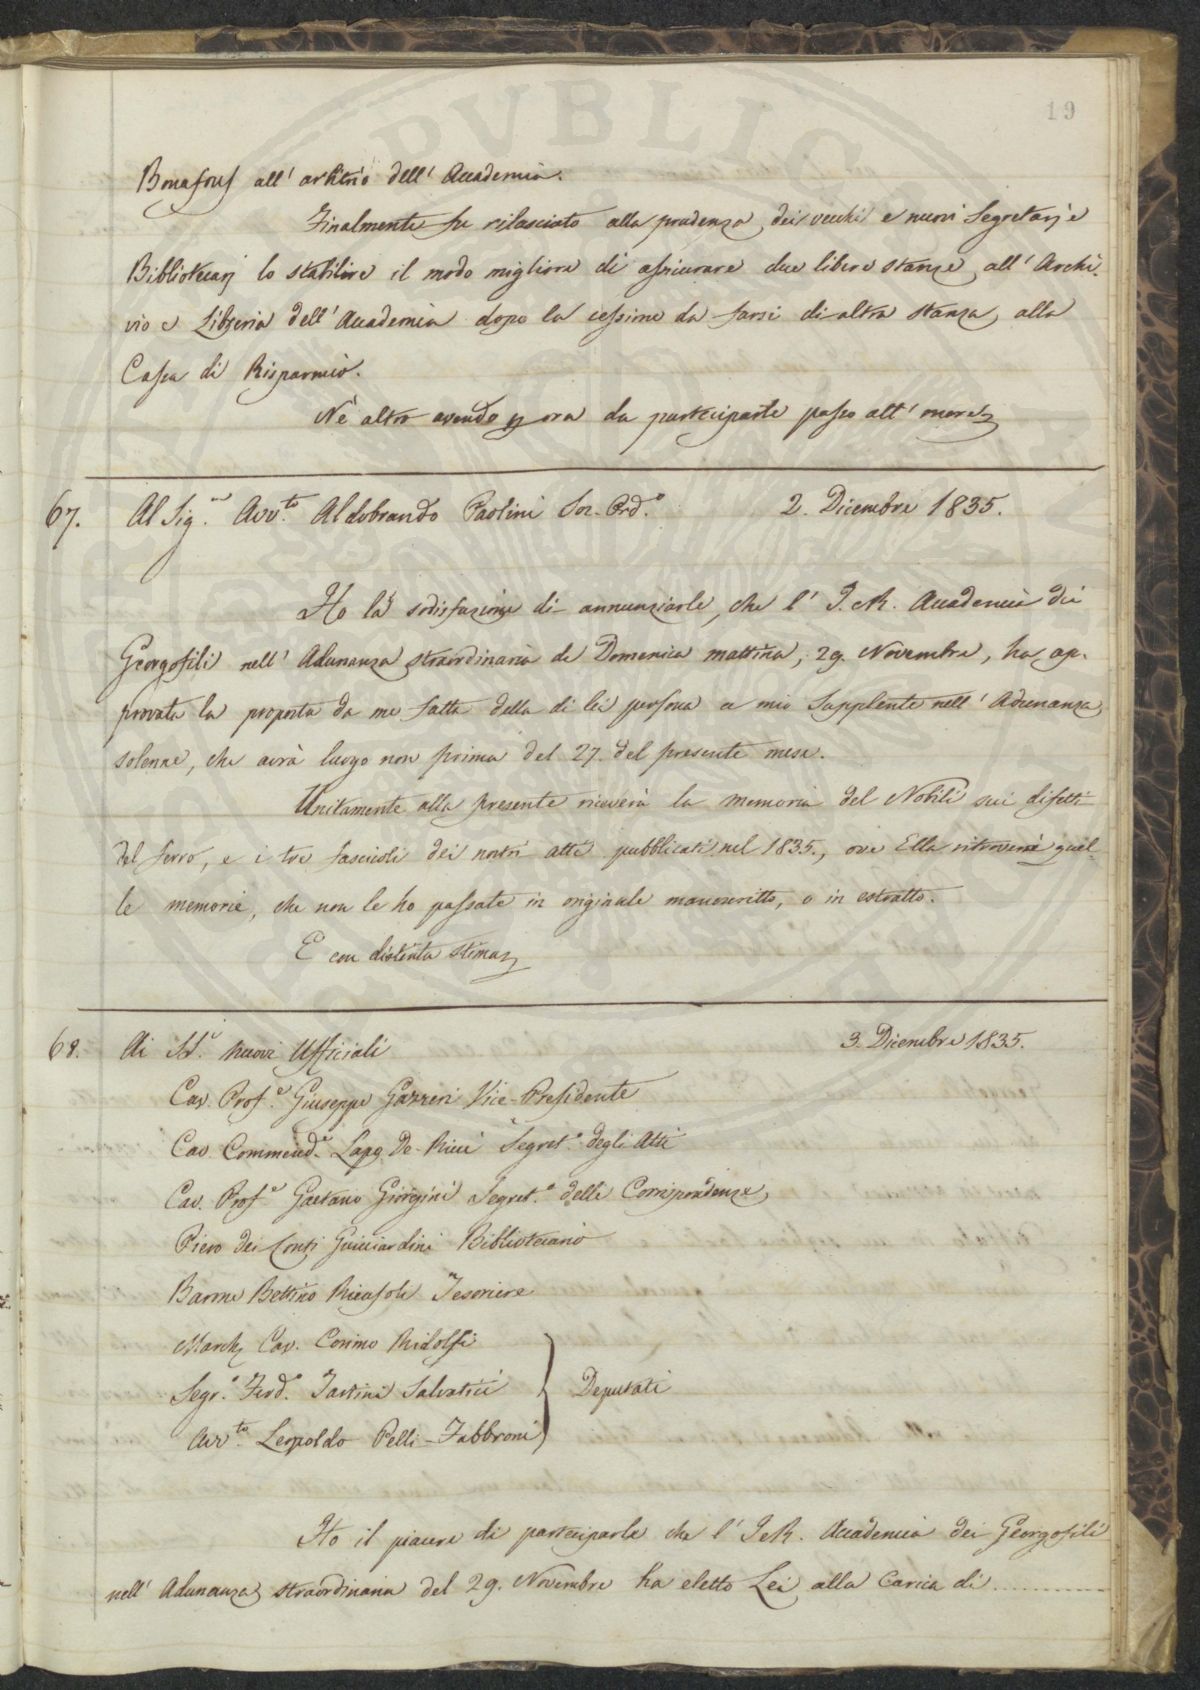 19
Bonafous all' arbitrio dell' Accademia.
Finalmente fu rilasciato alla prudenza dei vecchi e nuovi Segretarj e
Bibliotecarj lo stabilire il modo migliore di assicurare due libere stanze all' Archi-
vio e Libreria dell' Accademia dopo la cessione da farsi di altra stanza alla
Cassa di Risparmio.
Nè altro avendo p ora da participarle passo all' onore
67. Al Sig.re Avv.to Aldobrando Paolini Soc. Ord.o 2. Dicembre 1835.
Ho la sodisfazione di annunziarle, che l' I. e R. Accademia dei
Georgofili nell' Adunanza straordinaria di Domenica mattina, 29. Novembre, ha ap-
provata la proposta da me fatta della di lei persona a mio Supplente nell' Adunanza
solenne, che avrà luogo non prima del 27. del presente mese.
Unitamente alla presente riceverà la memoria del Nobili sui difetti
del ferro, e i tre fascicoli dei nostri atti pubblicati nel 1835., ove Ella ritroverà quel-
le memorie, che non le ho passate in originale manoscritto, o in estratto.
E con distinta stima
68. Ai SS.i nuovi Ufficiali 3. Dicembre 1835.
Cav. Prof.e Giuseppe Gazzeri Vice-Presidente
Cav. Commend.e Lapo De-Ricci Segret.o degli Atti
Cav. Prof.e Gaetano Giorgini Segret.o delle Corrispondenze
Piero dei Conti Guicciardini Bibliotecario
Barone Bettino Ricasoli Tesoriere
March. Cav. Cosimo Ridolfi
Segr.o Ferd.o Tartini Salvatici Deputati
Avv.to Leopoldo Pelli-Fabbroni
Ho il piacere di participarle che l' I e R. Accademia dei Georgofili
nell' Adunanza straordinaria del 29. Novembre ha eletto Lei alla Carica di ............